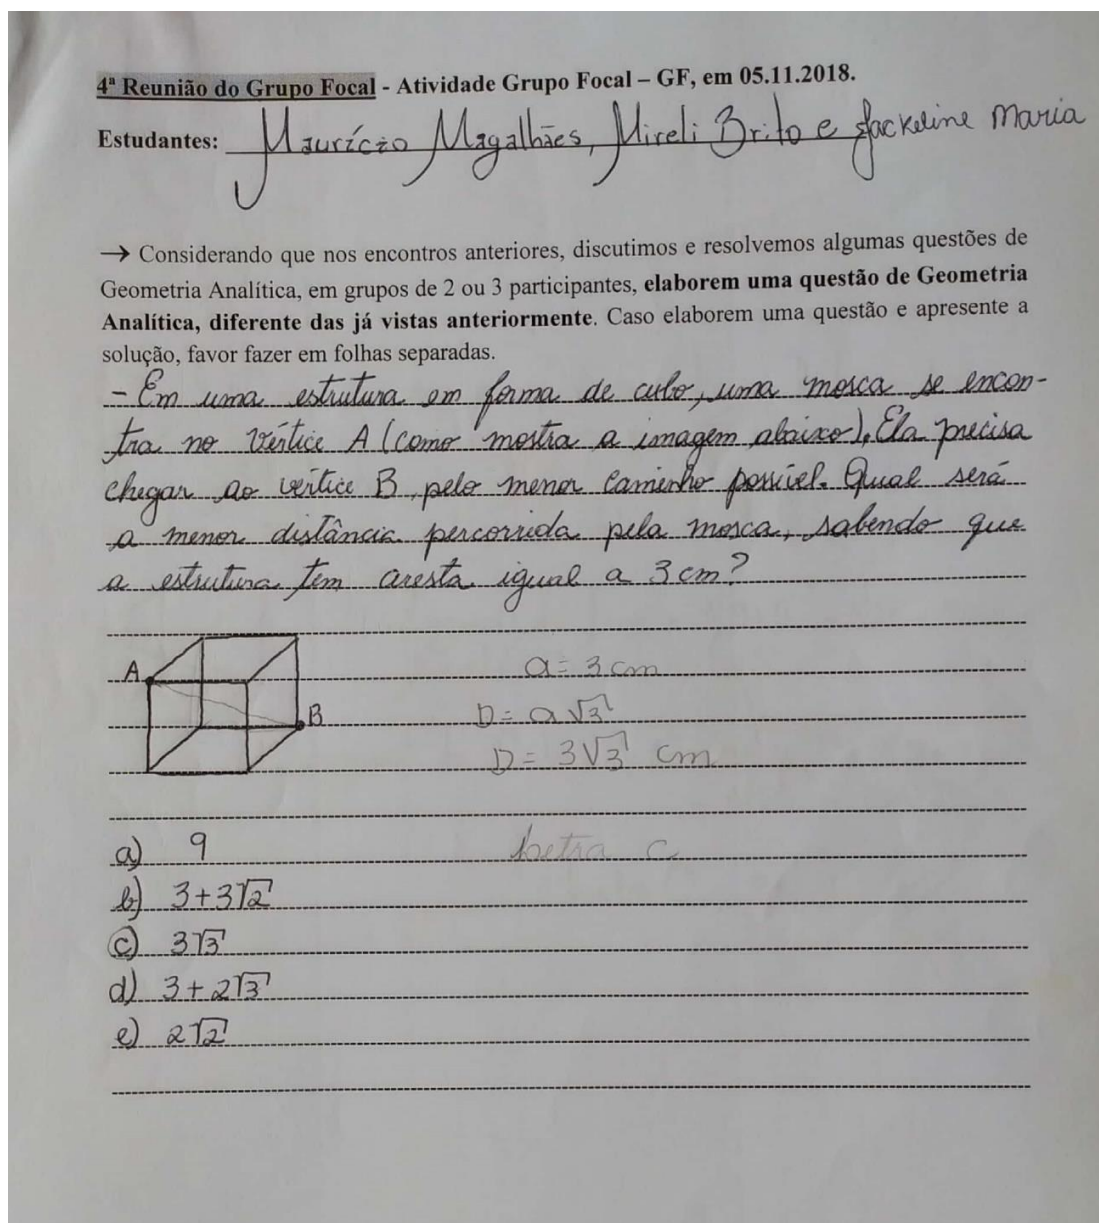 4ª Reunião do Grupo Focal - Atividade Grupo Focal – GF, em 05.11.2018.
Estudantes: Maurício Magalhães, Mireli Brito e Jackeline Maria
→ Considerando que nos encontros anteriores, discutimos e resolvemos algumas questões de
Geometria Analítica, em grupos de 2 ou 3 participantes, elaborem uma questão de Geometria
Analítica, diferente das já vistas anteriormente. Caso elaborem uma questão e apresente a
solução, favor fazer em folhas separadas.
- Em uma estrutura em forma de cubo, uma mosca se encon-
tra no vértice A (como mostra a imagem abaixo). Ela precisa
chegar ao vértice B, pelo menor caminho possível. Qual será
a menor distância percorrida pela mosca, sabendo que
a estrutura tem aresta igual a 3 cm?
A
B
a = 3 cm
D = a√3
D = 3√3 cm
Letra C
a) 9
b) 3+3√2
c) 3√3
d) 3+2√3
e) 2√2